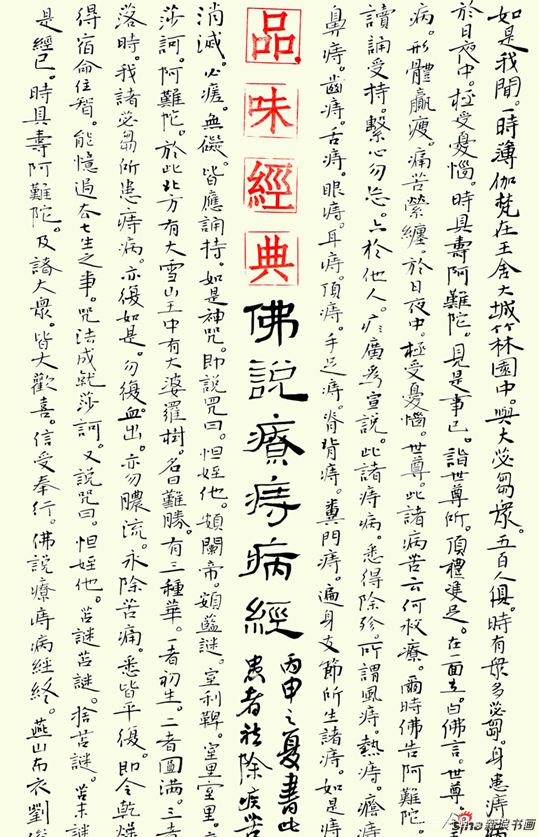 如是我聞。一時薄伽梵在王舍大城竹林園中。與大苾芻眾。五百人俱。時有眾多苾芻。身患痔
於日夜中。極受憂惱。時具壽阿難陀。見是事已。詣世尊所。頂禮雙足。在一面立。白佛言。世尊。
病。形體羸瘦。痛苦縈纏。於日夜中。極受憂惱。世尊。此諸病苦云何救療。爾時佛告阿難陀
讀誦受持。繫心勿忘。亦於他人。廣為宣說。此諸痔病。悉得除殄。所謂風痔。熱痔。癊痔
鼻痔。齒痔。舌痔。眼痔。耳痔。頂痔。手足痔。脊背痔。糞門痔。遍身支節所生諸痔。如是痔
品味經典
佛說療痔病經
丙申之夏書此
患者祛除疾苦
消滅。必瘥。無礙。皆應誦持。如是神咒。即說咒曰。怛姪他。頞闌帝。頞藍謎。室利鞞。室里室里。
莎訶。阿難陀。於此北方有大雪山王中有大婆羅樹。名曰難勝。有三種華。一者初生。二者圓滿。三者
落時。我諸苾芻所患痔病。亦復如是。勿復血出。亦勿膿流。永除苦痛。悉皆平復。即令乾燥
得宿命住智。能憶過去七生之事。咒法成就莎訶。又說咒曰。怛姪他。苫謎苫謎。捨苫謎。苫末謎
是經已。時具壽阿難陀。及諸大眾。皆大歡喜。信受奉行。佛說療痔病經終。燕山布衣劉
sina新浪书画